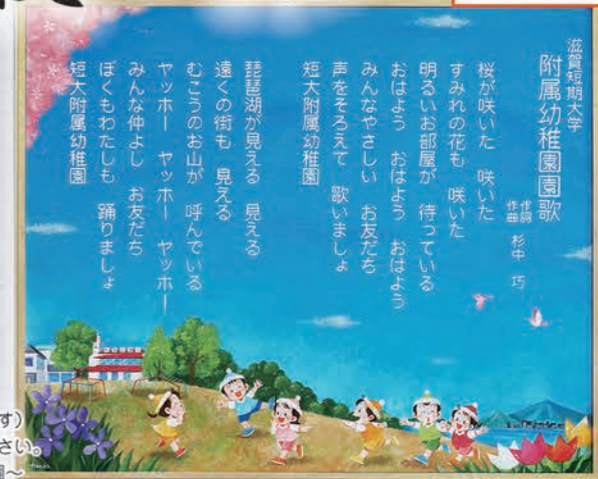 滋賀短期大学
附属幼稚園園歌
作詞
作曲 杉中 巧
桜が咲いた 咲いた
すみれの花も 咲いた
明るいお部屋が 待っている
おはよう おはよう おはよう
みんなやさしい お友だち
声をそろえて 歌いましょ
短大附属幼稚園
琵琶湖が見える 見える
遠くの街も 見える
むこうのお山が 呼んでいる
ヤッホー ヤッホー ヤッホー
みんな仲よし お友だち
ぼくもわたしも 踊りましょ
短大附属幼稚園
す)
さい。